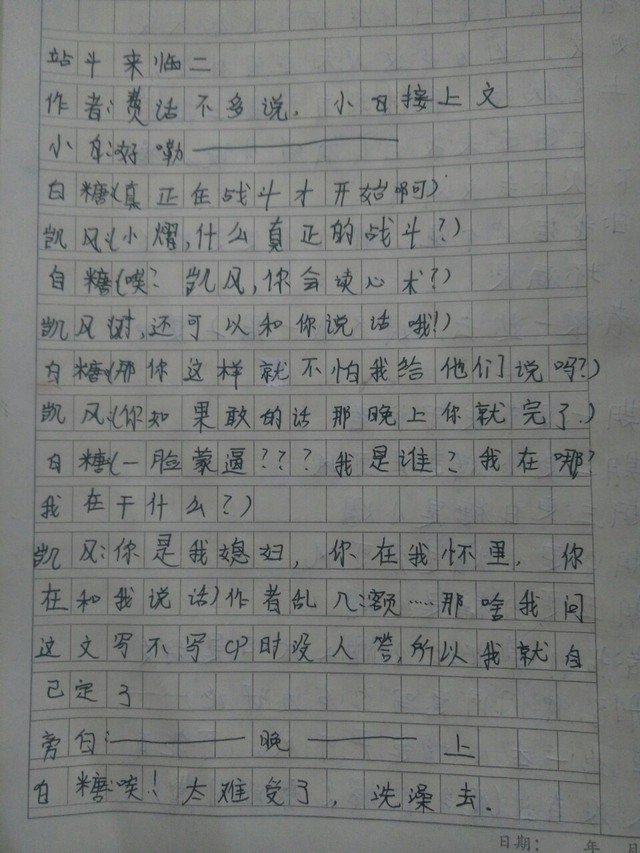 站斗来临二
作者:费话不多说,小白接上文
小白:好嘞————
白糖(真正在战斗才开始啊)
凯风(小熠,什么真正的战斗?)
白糖(唉?凯风,你会读心术?)
凯风(对,还可以和你说话哦!)
白糖(那你这样就不怕我给他们说吗?)
凯风(你如果敢的话那晚上你就完了.)
白糖(一脸蒙逼???我是谁?我在哪?
我在干什么?)
凯风:你是我媳妇,你在我怀里,你
在和我说话)作者乱入:额……那啥我问
这文写不写CP时没人答,所以我就自
己定了
旁白:————晚————上
白糖:唉!太难受了,洗澡去.
日期: 年 月